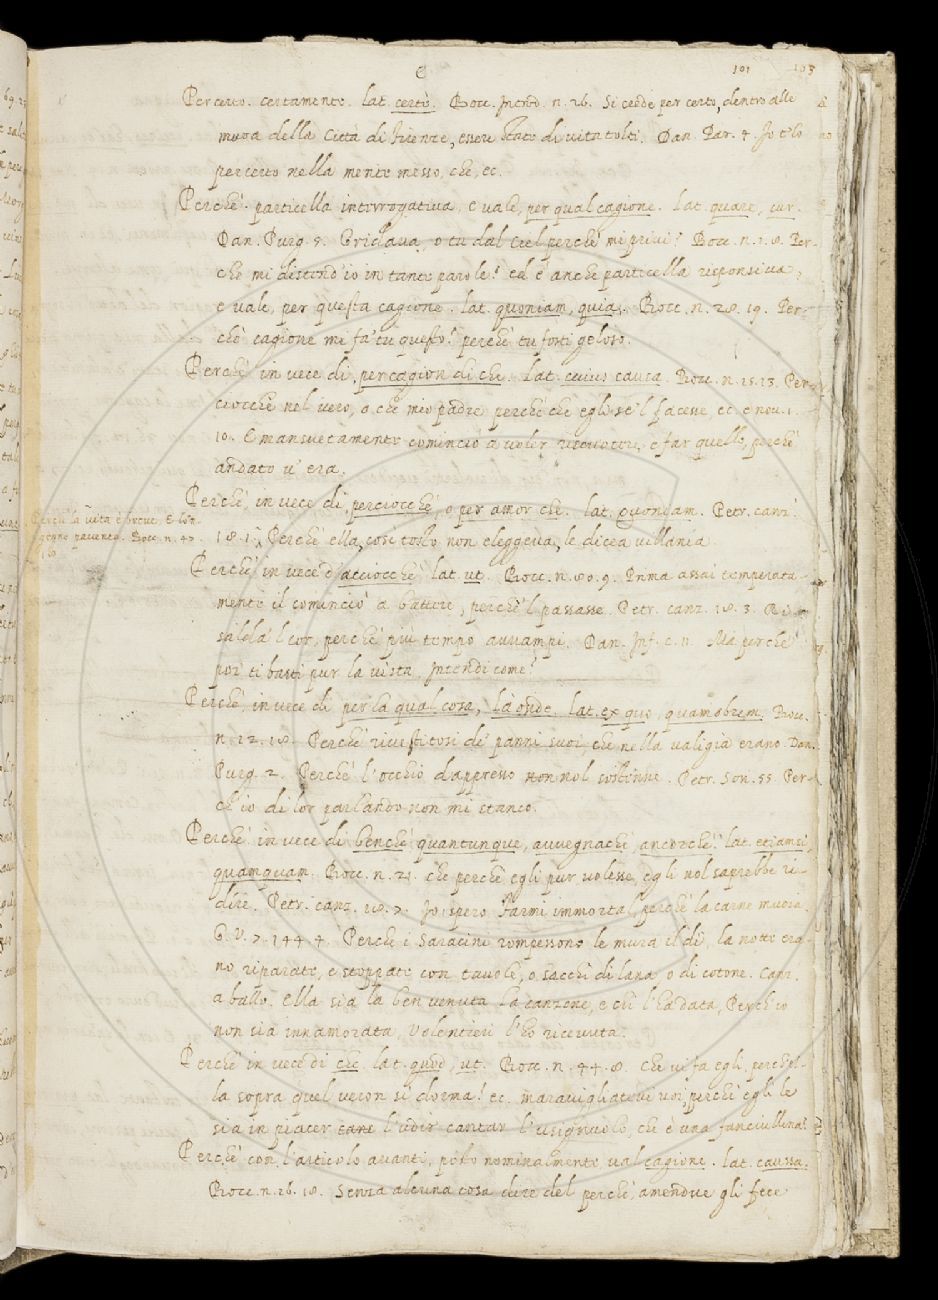 C
101 103
Per certo. certamente. lat. certò. Bocc. Introd. n. 26. Si crede per certo, dentro alle
mura della Città di Firenze, essere stato di vita tolti. Dan. Par. 4. Io t'ho
per certo nella mente messo, che, ec.
Perchè. particella interrogativa. e vale, per qual cagione. lat. quare, cur.
Dan. Purg. 5. Gridava, o tu dal Ciel perchè mi privi? Bocc. n. 1. 8. Per-
chè mi distend'io in tante parole? ed è anche particella responsiva,
e vale, per questa cagione. lat. quoniam, quia. Bocc. n. 28. 19. Per-
chè cagione mi fa' tu questo? perchè tu fosti geloso.
Perchè in vece di, per cagion di che. lat. cuius causa. Bocc. n. 15. 13. Per-
ciocchè nel vero, o che mio padre perchè che egli se'l facesse, ec. e nov. 1.
10. E mansuetamente cominciò a voler riscuotere, e far quello, perchè
andato v'era.
Perchè, in vece di, perciocchè, o per amor che. lat. Quoniam. Petr. canz.
Perch la vita è breve, E l'in-
gegno paventa. Bocc. n. 47.
16.
18. 1. Perchè ella, così tosto non eleggeva, le dicea villania.
Perchè in vece d'acciocchè lat. ut. Bocc. n. 80. 9. Prima assai temperata-
mente il cominciò a battere, perchè'l passasse. Petr. canz. 18. 3.
'l cor, perchè più tempo avvampi. Dan. Inf. c. 11. Ma perchè
poi ti basti pur la vista, Intendi come?
Perchè, in vece di per la qual cosa, là onde. lat. ex quo, quamobrem. Bocc.
n. 12. 18. Perchè rivestitosi de' panni suoi, che nella valigia erano. Dan.
Purg. 2. Perchè l'occhio dappresso non nol sostenne. Petr. Son. 55. Per-
ch'io di lor parlando non mi stanco.
Perchè in vece di benchè quantunque, avvegnachè, ancorchè. lat. etiamsi,
quamquam. Bocc. n. 21. che perchè egli pur volesse, egli nol saprebbe ri-
dire. Petr. canz. 28. 7. Io spero farmi immortal, perchè la carne muoia.
G. V. 7. 144. 4. Perchè i Saracini rompessono le mura il dì, la notte era-
no riparate, e stoppate con tavole, o sacchi di lana o di cotone. Canz.
a ballo. Ella sia la ben venuta La canzone, e chi l'ha data, Perch'io
non sia innamorata, Volentieri l'ho ricevuta.
Perchè in vece di che lat. quod, ut. Bocc. n. 44. 8. Che vi fa egli, perchè el-
la sopra quel veron si dorma? ec. maravigliatevi voi, perchè egli le
sia in piacer l'udir cantar l'usignuolo, che è una fanciullina?
Perchè con l'articolo avanti, posto nominalmente val cagione. lat. caussa.
Bocc. n. 26. 18. Senza alcuna cosa dire del perchè, amendue gli fece